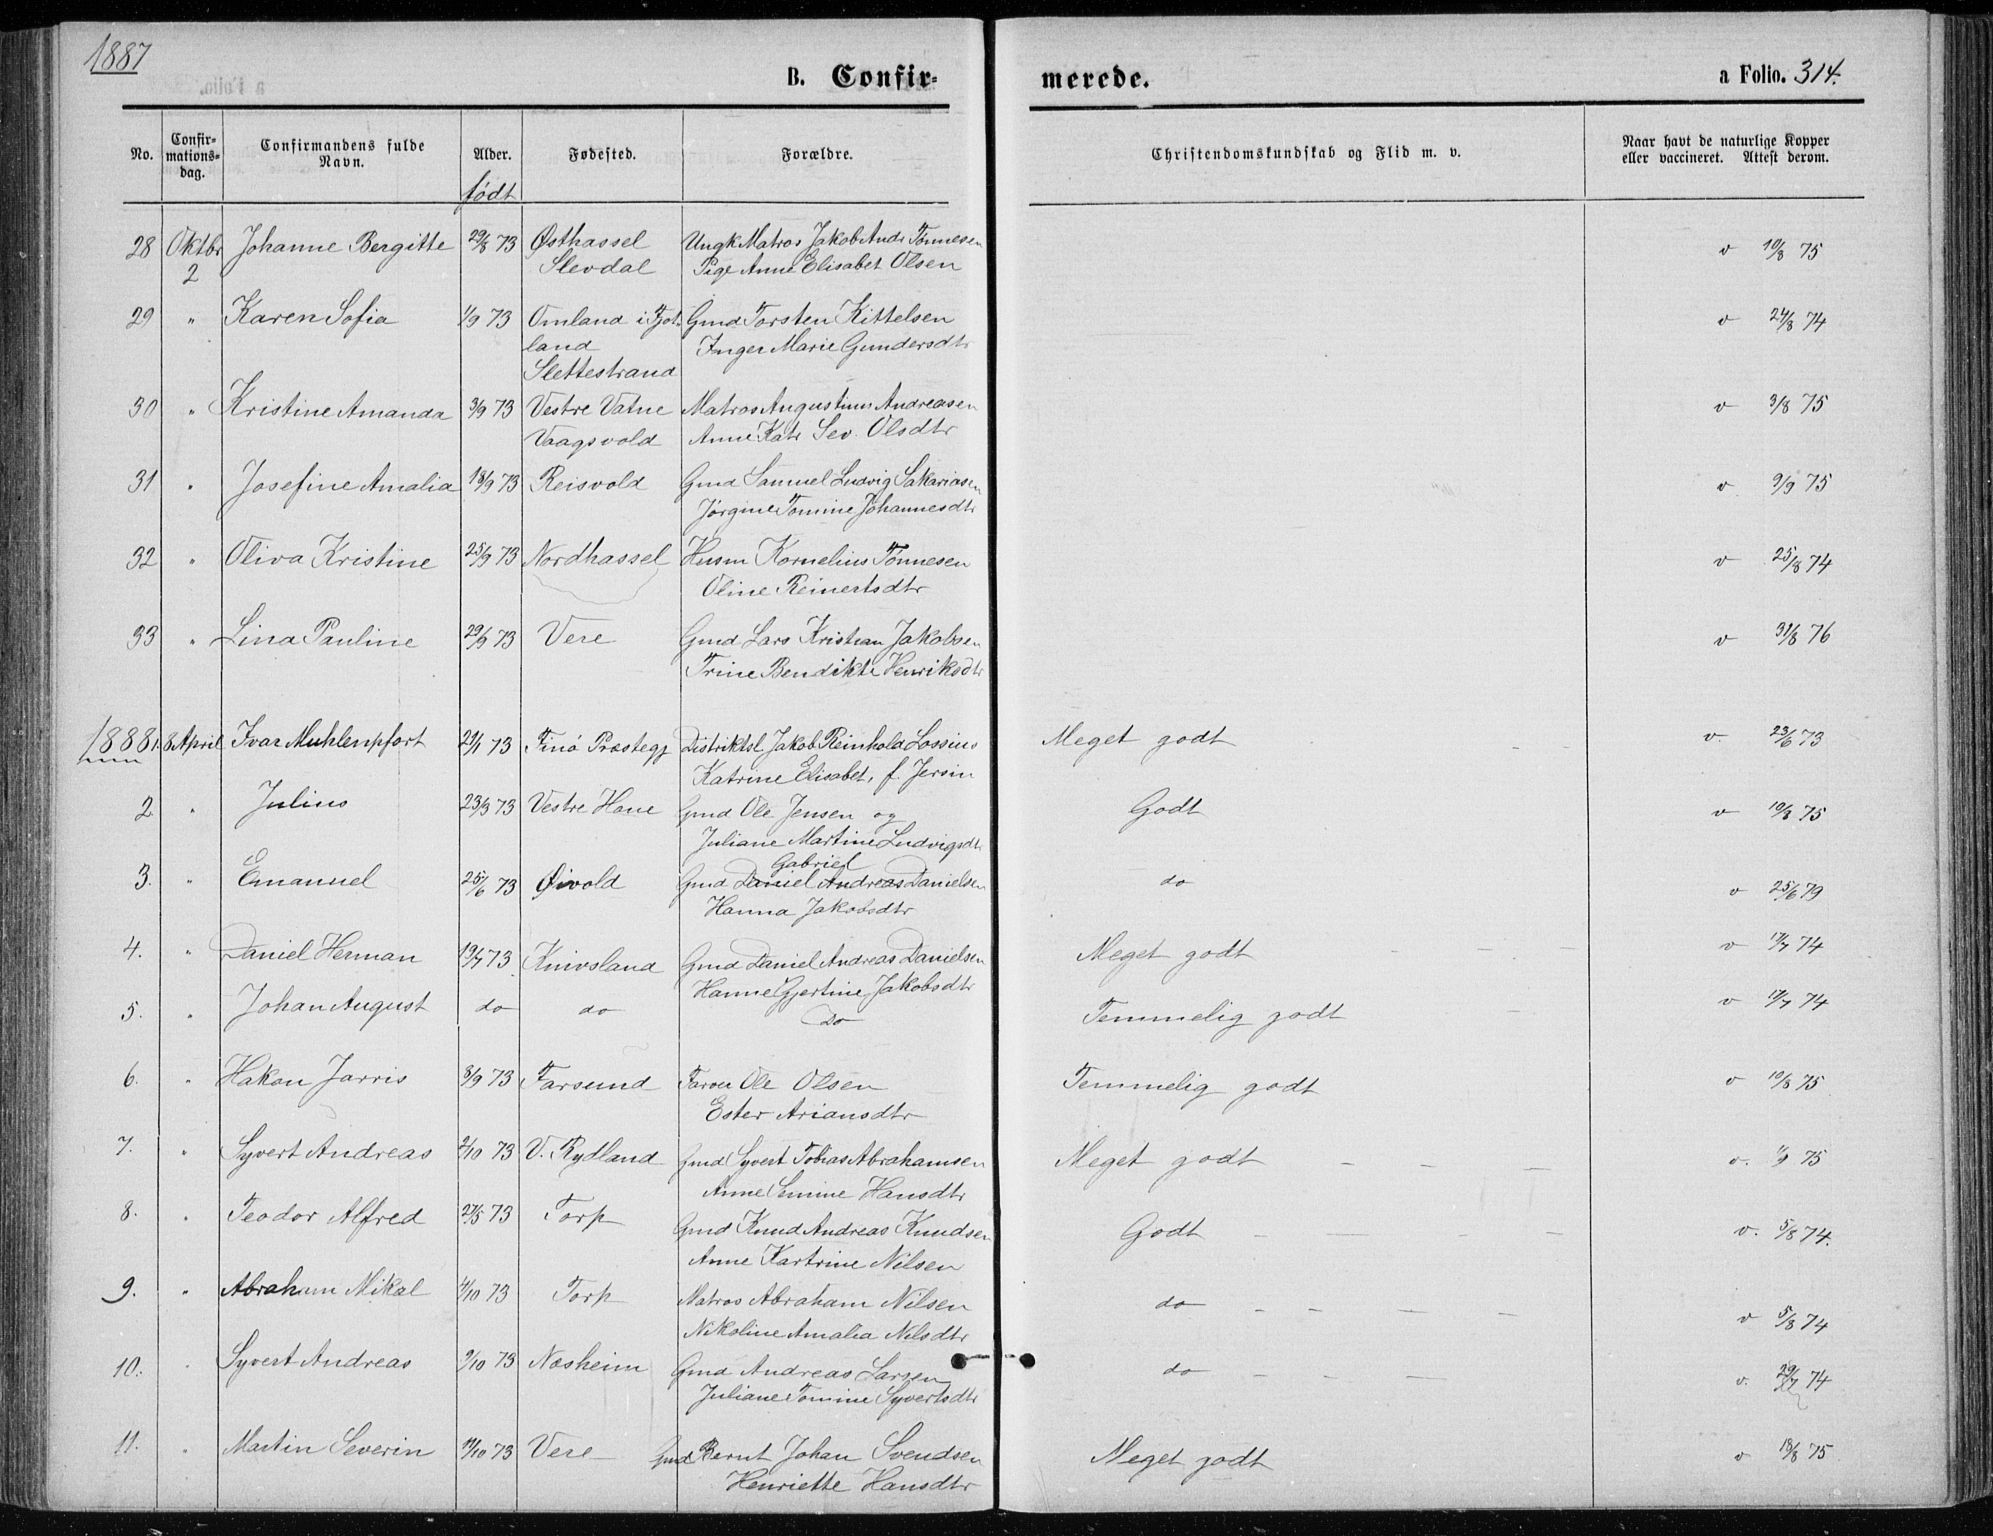 1887
B. Confir-
merede.
a Folio. 314.
No.
Confir-
mations-
dag.
Confirmandens fulde
Navn.
Alder.
født
Fødested.
Forældre.
Christendomskundskab og Flid m. v.
Naar havt de naturlige Kopper
eller vaccineret. Attest derom.
28 Oktbr Johanne Bergitte 29/8 73 Østhassel Ungk Matros Jakob Andr Tønnesen v 10/8 75
2 Slevdal Pige Anne Elisabet Olsen
29 " Karen Sofia 1/9 73 Omland i Fjot- Gmd Torsten Kittelsen v 24/8 74
land Inger Marie Gundersdtr
Slettestrand
30 " Kristine Amanda 3/9 73 Vestre Vatne Matros Augustinus Andreasen v 3/8 75
Vaagsvold Anne Katr Sev. Olsdtr
31 " Josefine Amalia 18/9 73 Reisvold Gmd Samuel Ludvig Sakariasen v 9/9 75
Jørgine Tomine Johannesdtr
32 " Oliva Kristine 25/9 73 Nordhassel Husm Kornelius Tønnesen v 25/8 74
Oline Reinertsdtr
33 " Lina Pauline 29/9 73 Vere Gmd Lars Kristian Jakobsen v 31/8 76
Trine Bendikte Henriksdtr
1888 1. 8 April Ivar Muhlenpfort 29/1 73 Finö Præstegj Distriktsl Jakob Reinhold Lossius Meget godt v. 23/6 73
Katrine Elisabet, f. Jersin
2 " Julius 23/3 73 Vestre Hane Gmd Ole Jensen og Godt v 10/8 75
Juliane Martine Ludvigsdtr
Gabriel
3. " Emanuel 25/6 73 Øivold Gmd Daniel Andreas Danielsen do v 25/6 79
Hanna Jakobsdtr
4. " Daniel Herman 19/7 73 Knivsland Gmd Daniel Andreas Danielsen Meget godt v 17/7 74
Hanne Gjertine Jakobsdtr
5. " Johan August do do Do Temmelig godt v 17/7 74
6. " Hakon Jarris 8/9 73 Farsund Farver Ole Olsen Temmelig godt v 10/8 75
Ester Ariansdtr
7. " Syvert Andreas 2/10 73 V. Rydland Gmd Syvert Tobias Abrahamsen Meget godt v. 75
Anne Semine Hansdtr
8. " Teodor Alfred 27/5 73 Torp Gmd Knud Andreas Knudsen Godt v. 5/8 74.
Anne Kartrine Nilsen
9. " Abraham Mikal 4/10 73 Torp Matros Abraham Nilsen do v 5/8 74
Nikoline Amalia Nilsdtr
10. " Syvert Andreas 9/10 73 Næsheim Gmd Andreas Larsen do v. 29/7 74
Juliane Tomine Syvertsdtr
11. " Martin Severin 11/10 73 Vere Gmd Bernt Johan Svendsen Meget godt v 18/8 75
Henriette Hansdtr